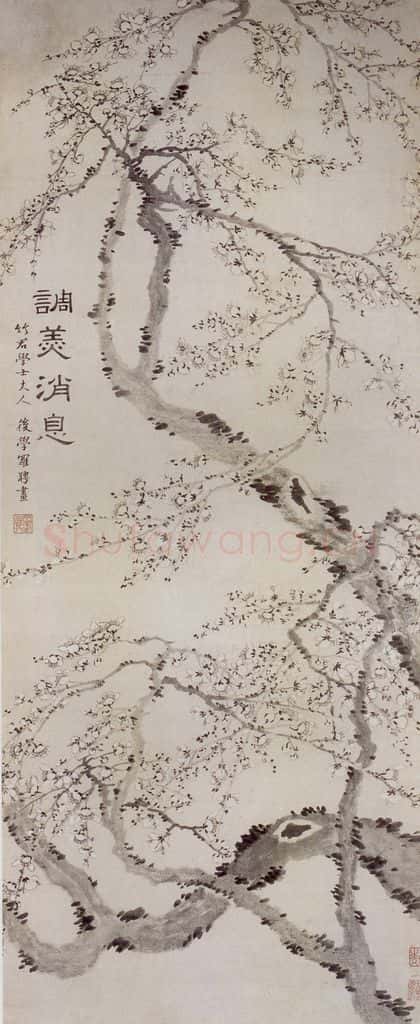 調羹消息
竹君學士大人 後學羅聘畫
Shufawang.CN